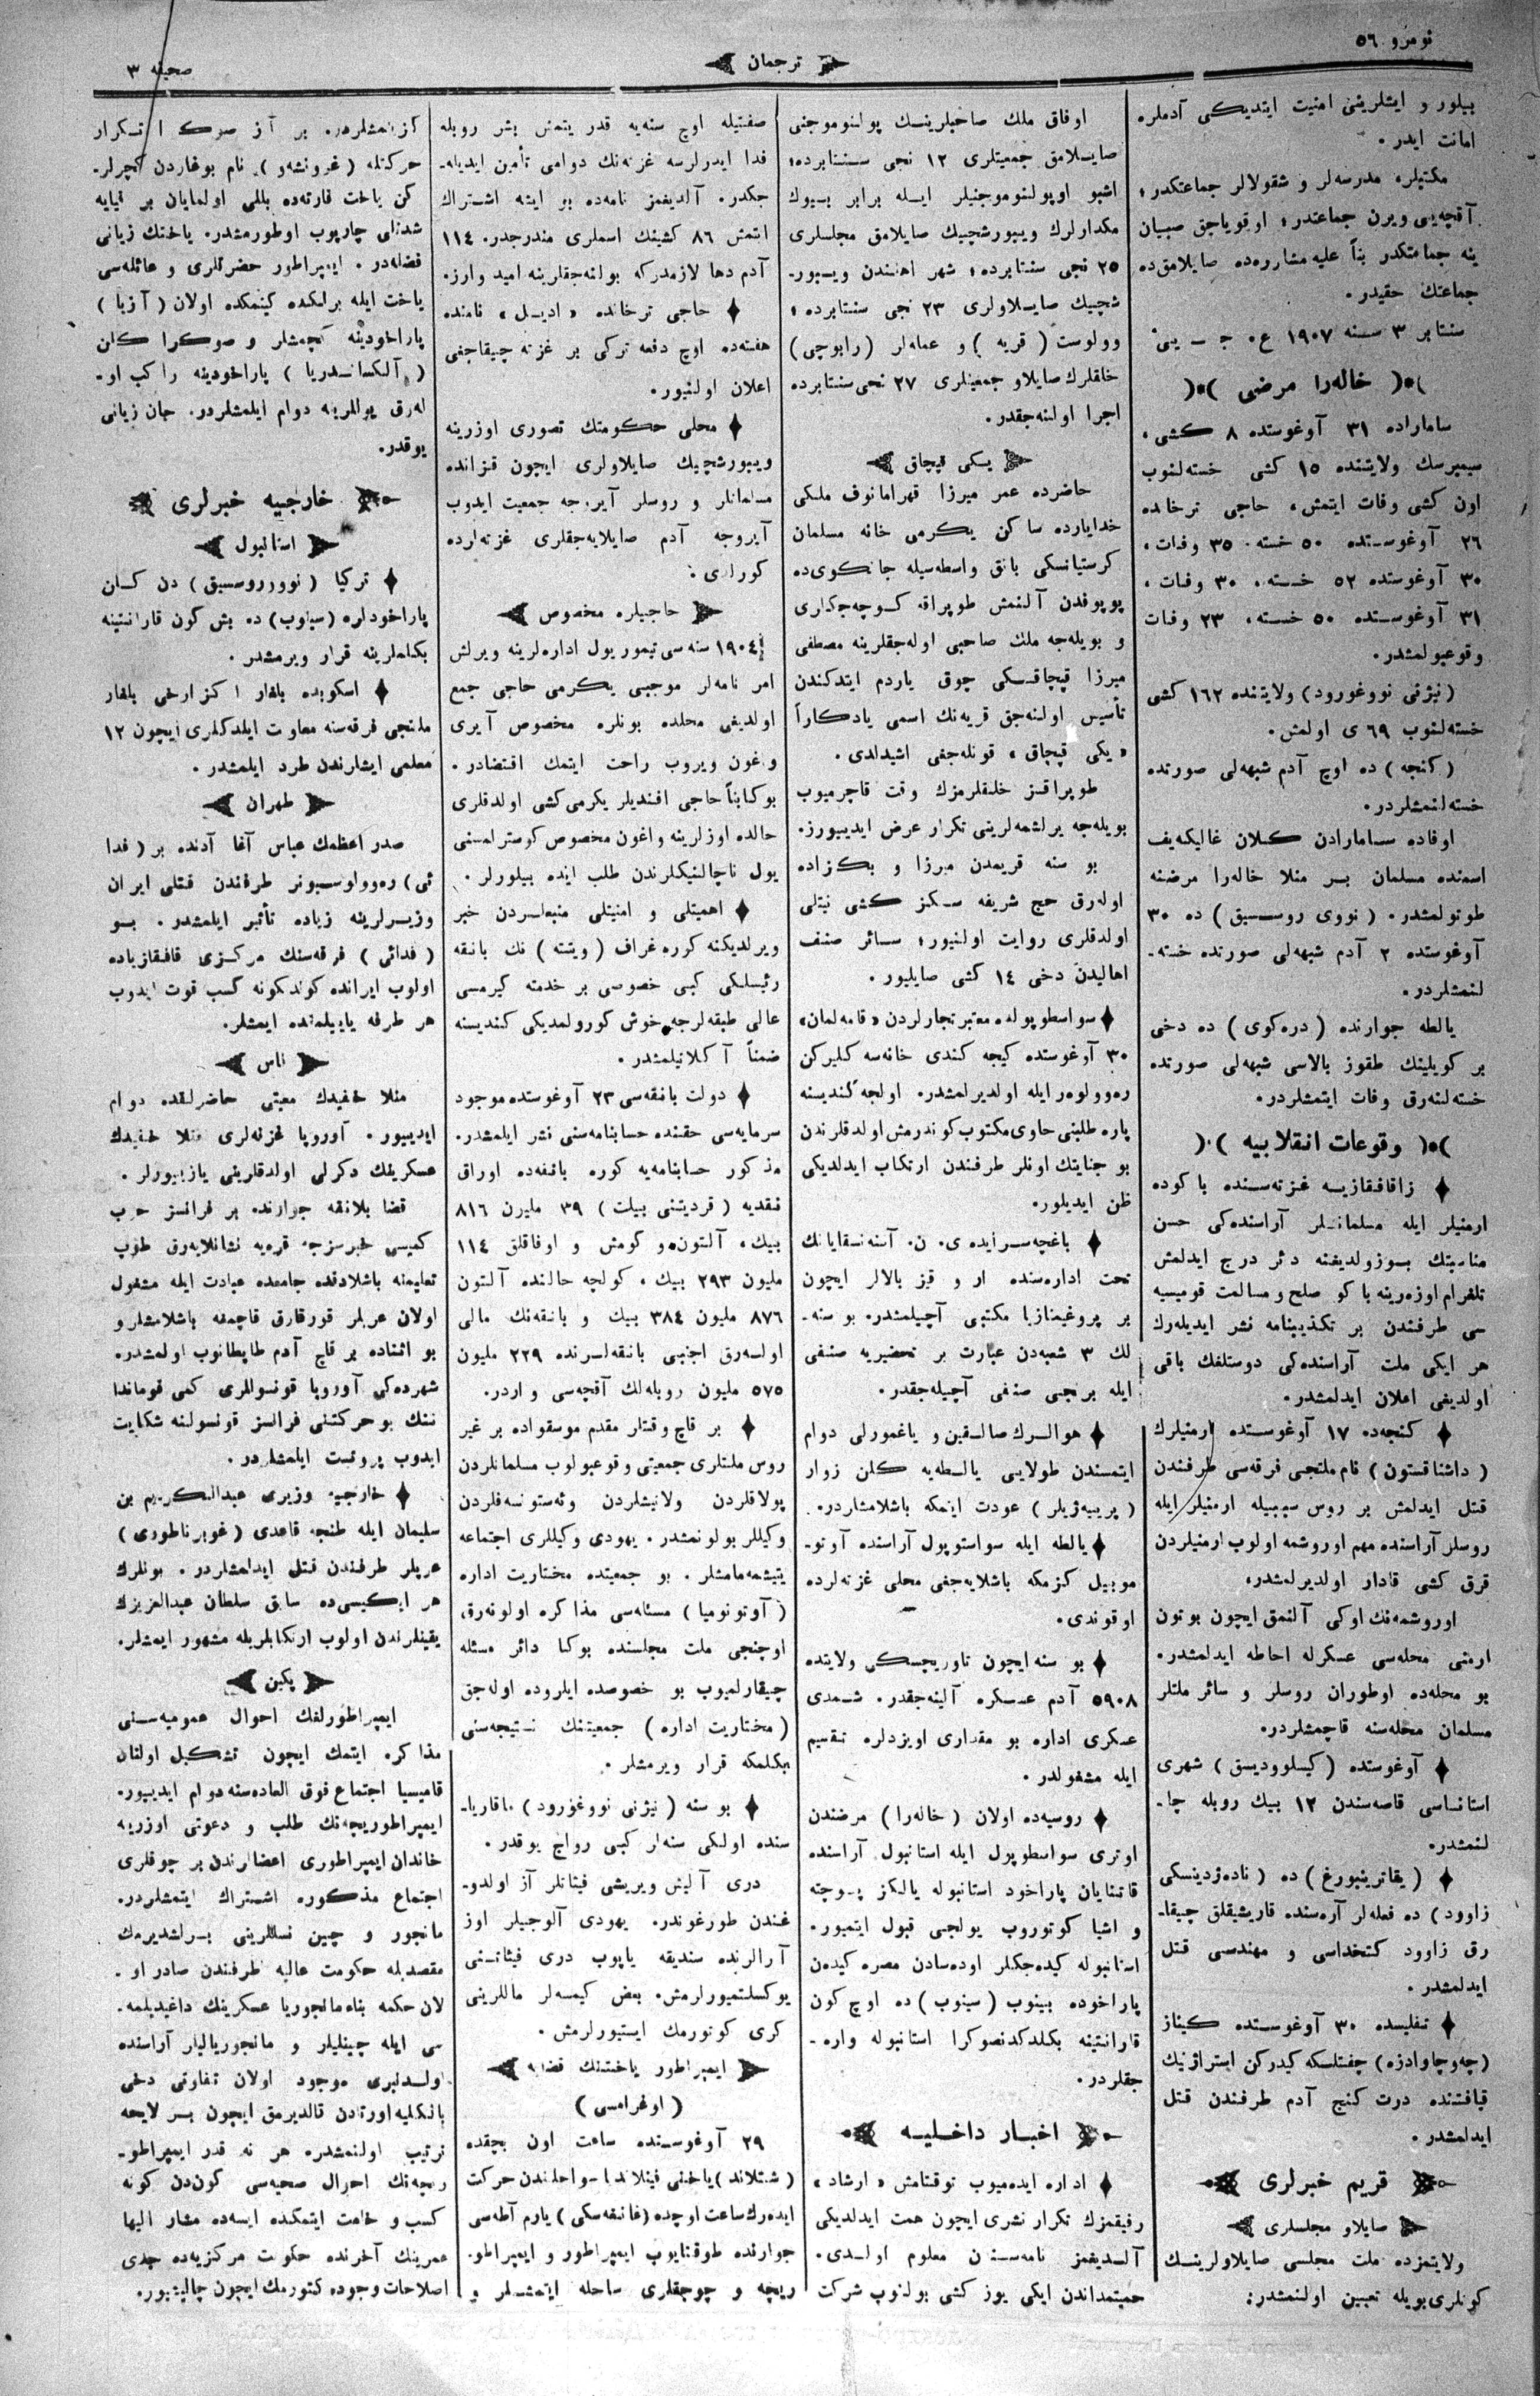 نومرو ٥٦
ترجمان
صحیفه ٣
بیلور و ایشلرینی امنیت ایتدیکی آدملره
امانت ایدر.
مکتبلر، مدرسه‌لر و شقولالر جماعتکدر؛
آقچه‌یی ویرن جماعتدر؛ اوقویاجق صبیان
ینه جماعتکدر بناً علیه مشاروده صایلامق‌ده
جماعتك حقیدر.
سنتابر ٣ سنه ١٩٠٧ ع. ج ـ یی.
خاله‌را مرضی
ساماراده ٣١ آوغوستده ٨ کشی،
سیمبرسك ولایتنده ١٥ کشی خسته‌لنوب
اون کشی وفات ایتمش، حاجی ترخانده
٢٦ آوغوستده ٥٠ خسته. ٣٥ وفات،
٣٠ آوغوستده ٥٢ خسته، ٣٠ وفات،
٣١ آوغوستده ٥٠ خسته، ٢٣ وفات
وقوعبولمشدر.
(نیژنی نووغورود) ولایتنده ١٦٢ کشی
خسته‌لنوب ٦٩ ی اولمش.
(کنجه) ده اوچ آدم شبهه‌لی صورتده
خسته‌لنمشلردر.
اوفاده سامارادن کلان غالیکه‌یف
اسمنده مسلمان بر منلا خاله‌را مرضنه
طوتولمشدر. (نووی روسسیق) ده ٣٠
آوغوستده ٢ آدم شبهه‌لی صورتده خسته‌ـ
لنمشلردر.
یالطه جوارنده (دره‌کوی) ده دخی
بر کویلینك طقوز بالاسی شبهه‌لی صورتده
خسته‌لنه‌رق وفات ایتمشلردر.
وقوعات انقلابیه
زاقافقازیه غزته‌سنده باکوده
ارمنیلر ایله مسلمانلر آراسنده‌کی حسن
مناسبتك بوزولدیغنه دئر درج ایدلمش
تلغرام اوزه‌رینه باکو صلح و مسالمت قومیسیه
سی طرفندن بر تکذیبنامه نشر ایدیله‌رك
هر ایکی ملت آراسنده‌کی دوستلغك باقی
اولدیغی اعلان ایدلمشدر.
کنجه‌ده ١٧ آوغوستده ارمنیلرك
(داشناقستون) نام ملتجی فرقه‌سی طرفندن
قتل ایدلمش بر روس سببیله ارمنیلر ایله
روسلر آراسنده مهم اوروشمه اولوب ارمنیلردن
قرق کشی قادار اولدیرلمشدر.
اوروشمه‌نك اوکی آلنمق ایچون بوتون
ارمنی محله‌سی عسکرله احاطه ایدلمشدر.
بو محله‌ده اوطوران روسلر و سائر ملتلر
مسلمان محله‌سنه قاچمشلردر.
آوغوستده (کیسلوودیسق) شهری
استانساسی قاصه‌سندن ١٢ بیك روبله چاـ
لنمشدر.
(یقاترینبورغ) ده (ناده‌ژدینسکی
زاوود) ده فعله‌لر آره‌سنده قاریشیقلق چیقاـ
رق زاوود کتخداسی و مهندسی قتل
ایدلمشدر.
تفلیسده ٣٠ آوغوستده کیناز
(چه‌وچاوادزه) چفتلسکه کیدرکن استراژنیك
قیافتنده درت کنج آدم طرفندن قتل
ایدلمشدر.
قریم خبرلری
صایلاو مجلسلری
ولایتمزده ملت مجلسی صایلاولرینك
کونلری بویله تعیین اولنمشدر:
اوفاق ملك صاحبلرینك پولنوموجنی
صایلامق جمعیتلری ١٢ نجی سنتابرده؛
اشبو اوپولنوموجنیلر ایله برابر بیوك
ملکدارلرك ویبورشچیك صایلامق مجلسلری
٢٥ نجی سنتابرده؛ شهر اهلندن ویبورـ
شچیك صایلاولری ٢٣ نجی سنتابرده؛
وولوست (قریه) و عمله‌لر (رابوچی)
خلقلرك صایلاو جمعیتلری ٢٧ نجی سنتابرده
اجرا اولنه‌جقدر.
یسکی قپچاق
حاضرده عمر میرزا قهرامانوف ملکی
خدایارده ساکن یکرمی خانه مسلمان
کرستیانسکی بانق واسطه‌سیله جانکوی‌ده
پوپوفدن آلنمش طوپراقه کوچه‌جکلری
و بویله‌جه ملك صاحبی اوله‌جقلرینه مصطفی
میرزا قپچاقسکی چوق یاردم ایتدکندن
تأسیس اولنه‌جق قریه‌نك اسمی یادکاراً
«یکی قپچاق» قونله‌جغی اشیدلدی.
طوپراقسز خلقلرمزك وقت قاچرمیوب
بویله‌جه یرلشمه‌لرینی تکرار عرض ایدییورز.
بو سنه قریمدن میرزا و بك‌زاده
اوله‌رق حج شریفه سکز کشی نیتلی
اولدقلری روایت اولنیور؛ سائر صنف
اهالیدن دخی ١٤ کشی صایلیور.
سواسطوپوله معتبر تجارلردن «قامه‌لمان»
٣٠ آوغوستده کیجه کندی خانه‌سه کلیرکن
ره‌وولوه‌ر ایله اولدیرلمشدر. اولجه کندیسنه
پاره طلبنی حاوی مکتوب کوندرمش اولدقلرندن
بو جنایتك اونلر طرفندن ارتکاب ایدلدیکی
ظن ایدیلور.
باغچه‌سرایده ی. ن. آسنه‌سقایانك
تحت اداره‌سنده ار و قیز بالالر ایچون
بر پروغیمنازیا مکتبی آچیلمشدر. بو سنه‌ـ
لك ٣ شعبه‌دن عبارت بر تحضیریه صنفی
ایله برنجی صنفی آچیله‌جقدر.
هوالرك صالقین و یاغمورلی دوام
ایتمسندن طولایی یالطه‌یه کلن زوار
(پریه‌ژیلر) عودت ایتمکه باشلامشلردر.
یالطه ایله سواستوپول آراسنده آوتوـ
موبیل کزمکه باشلایه‌جغی محلی غزته‌لرده
اوقوندی.
بو سنه ایچون تاوریچسکی ولایتده
٥٩٠٨ آدم عسکره آلینه‌جقدر. شمدی
عسکری اداره بو مقداری اویزدلره تقسیم
ایله مشغولدر.
روسیه‌ده اولان (خاله‌را) مرضندن
اوتری سواسطوپول ایله استانبول آراسنده
قاتنایان پاراخود استانبوله یالکز پوچته
و اشیا کوتوروب یولجی قبول ایتمیور.
استانبوله کیده‌جکلر اوده‌سادن مصره کیدن
پاراخوده بینوب (سینوب) ده اوچ کون
قارانتینه بکلدکدنصوکرا استانبوله وارهـ
جقلردر.
اخبار داخلیه
اداره ایده‌میوب توقتامش «ارشاد»
رفیقمزك تکرار نشری ایچون همت ایدلدیکی
آلدیغمز نامه‌سندن معلوم اولدی.
حمیتمنداندن ایکی یوز کشی بولنوب شرکت
صفتیله اوچ سنه‌یه قدر یتمش بشر روبله
فدا ایدرلرسه غزته‌نك دوامی تأمین ایدیله‌ـ
جکدر. آلدیغمز نامه‌ده بو ایشه اشتراك
ایتمش ٨٦ کشینك اسملری مندرجدر. ١١٤
آدم دها لازمدرکه بولنه‌جقلرینه امید وارز.
حاجی ترخانده «ادیل» نامنده
هفته‌ده اوچ دفعه ترکی بر غزته چیقاجغی
اعلان اولنیور.
محلی حکومتك تصوری اوزرینه
ویبورشچیك صایلاولری ایچون قزانده
مسلمانلر و روسلر آیروجه جمعیت ایدوب
آیروجه آدم صایلایه‌جقلری غزته‌لرده
کورلدی.
حاجیلره مخصوص
١٩٠٤ سنه‌سی تیمور یول اداره‌لرینه ویرلش
امر نامه‌لر موجبی یکرمی حاجی جمع
اولدیغی محلده بونلره مخصوص آیری
واغون ویروب راحت ایتمك اقتضادر.
بوکا بناً حاجی افندیلر یکرمی کشی اولدقلری
حالده اوزلرینه واغون مخصوص کوسترلمسنی
یول ناچالنیکلرندن طلب ایده بیلورلر.
اهمیتلی و امنیتلی منبعلردن خبر
ویرلدیکنه کوره غراف (ویتته) نك بانقه
رئیسلکی کبی خصوصی بر خدمته کیرمسی
عالی طبقه‌لرجه خوش کورولمدیکی کندیسنه
ضمناً آکلاتیلمشدر.
دولت بانقه‌سی ٢٣ آوغوستده موجود
سرمایه‌سی حقنده حسابنامه‌سنی نشر ایلمشدر.
مذکور حسابنامه‌یه کوره بانقه‌ده اوراق
نقدیه (قردیتنی بیلت) ٣٩ ملیون ٨١٦
بیك، آلتون و کومش و اوفاقلق ١١٤
ملیون ٢٩٣ بیك، کولچه حالنده آلتون
٨٧٦ ملیون ٣٨٤ بیك و بانقه‌نك مالی
اوله‌رق اجنبی بانقه‌لرنده ٢٢٩ ملیون
٥٧٥ ملیون روبله‌لك آقچه‌سی واردر.
بر قاچ وقتلر مقدم موسقواده بر غیر
روس ملتلری جمعیتی وقوعبولوب مسلمانلردن
پولاقلردن ولاتیشلردن وئه‌ستونسه‌قلردن
وکیللر بولونمشدر. یهودی وکیللری اجتماعه
یتیشمه‌مامشلر. بو جمعیتده مختاریت اداره
(آوتونومیا) مسئله‌سی مذاکره اولونه‌رق،
اوچنجی ملت مجلسنده بوکا دائر مسئله
چیقارلمیوب بو خصوصده ایلروده اوله‌جق
(مختاریت اداره) جمعیتنك نتیجه‌سنی
بکلمکه قرار ویرمشلر.
بو سنه (نیژنی نووغورود) ماقاریاـ
سنده اولکی سنه‌لر کبی رواج یوقدر.
دری آلیش ویریشی فیئاتلر آز اولدوـ
غندن طورغوندر. یهودی آلوجیلر اوز
آرالرنده سندیقه یاپوب دری فیئاتنی
یوکسلتمیورلرمش. بعض کیمسه‌لر ماللرینی
کری کوتورمك ایستیورلرمش.
ایمپراطور یاختنك قضایه
(اوغرامسی)
٢٩ آوغوستده ساعت اون بچقده
(شتاند) یاختی فینلاندا سواحلندن حرکت
ایده‌رك ساعت اوچده (غانغه‌سکی) یارم آطه‌سی
جوارنده طوقنایوب ایمپراطور و ایمپراطوـ
ریچه و چوجقلری ساحله ایتمشلر و
کزنمشلردر. بر آز صوکرا تکرار
حرکتله (غرونشه‌و) نام بوغازدن کچرلرـ
کن یاخت قارته‌ده بللی اولمایان بر قیایه
شدتلی چارپوب اوطورمشدر. یاختك زیانی
فضله‌در. ایمپراطور حضرتلری و عائله‌سی
یاخت ایله برلکده کیتمکده اولان (آزیا)
پاراخودینه کچمشلر و صوکرا کلن
(آلکساندریا) پاراخودینه راکب اوـ
له‌رق یوللرینه دوام ایلمشلردر. جان زیانی
یوقدر.
خارجیه خبرلری
استانبول
ترکیا (نووروسسیق) دن کلن
پاراخودلره (سینوب) ده بش کون قارانتینه
بکلملرینه قرار ویرمشدر.
اسکوبده بلغار اکزارخی بلغار
ملتجی فرقه‌سنه معاونت ایلدکلری ایچون ١٢
معلمی ایشلرندن طرد ایلمشدر.
طهران
صدر اعظمك عباس آغا آدنده بر (فدا
ئی) ره‌وولوسیونر طرفندن قتلی ایران
وزیرلرینه زیاده تأثیر ایلمشدر. بو
(فدائی) فرقه‌سنك مرکزی قافقازیاده
اولوب ایرانده کوندکونه کسب قوت ایدوب
هر طرفه یاییلمنده ایمشلر.
فاس
منلا خفیدك معیتی حاضرلقده دوام
ایدییور. آوروپا غزته‌لری منلا خفیدك
عسکرینك دکرلی اولدقلرینی یازییورلر.
قضا بلانقه جوارنده بر فرانسز حرب
کمیسی خبرسزجه قره‌یه نشانلایه‌رق طوپ
تعلیمنه باشلادقده جامعده عبادت ایله مشغول
اولان عربلر قورقارق قاچمغه باشلامشلر و
بو اثناده بر قاچ آدم طاپطانوب اولمشدر.
شهرده‌کی آوروپا قونسوللری کمی قوماندا
ننك بو حرکتنی فرانسز قونسولنه شکایت
ایدوب پروتست ایلمشلردر.
خارجیه وزیری عبدالکریم بن
سلیمان ایله طنجه قاعدی (غوبرناطوری)
عربلر طرفندن قتل ایدلمشلردر. بونلرك
هر ایکیسی‌ده سابق سلطان عبدالعزیزك
یقینلرندن اولوب ارتکابلریله مشهور ایمشلر.
پکین
ایمپراطورلغك احوال عمومیه‌سنی
مذاکره ایتمك ایچون تشکیل اولنان
قامیسیا اجتماع فوق العاده‌سنه دوام ایدییور.
ایمپراطوریچه‌نك طلب و دعوتی اوزرینه
خاندان ایمپراطوری اعضالرندن بر چوقلری
اجتماع مذکوره اشتراك ایتمشلردر.
مانجور و چین نسللرینی برلشدیرمك
مقصدیله حکومت عالیه طرفندن صادر اوـ
لان حکمه بناء مانجوریا عسکرینك داغیدیلمه‌ـ
سی ایله چینلیلر و مانجوریالیلر آراسنده
اولدنبری موجود اولان تفاوتی دخی
بالکلیه اورتادن قالدیرمق ایچون بر لایحه
ترتیب اولنمشدر. هر نه قدر ایمپراطوـ
ریچه‌نك احوال صحیه‌سی کون‌دن کونه
کسب وخامت ایتمکده ایسه‌ده مشار الیها
عمرینك آخرنده حکومت مرکزیه‌ده جدی
اصلاحات وجوده کتورمك ایچون چالیشیور.